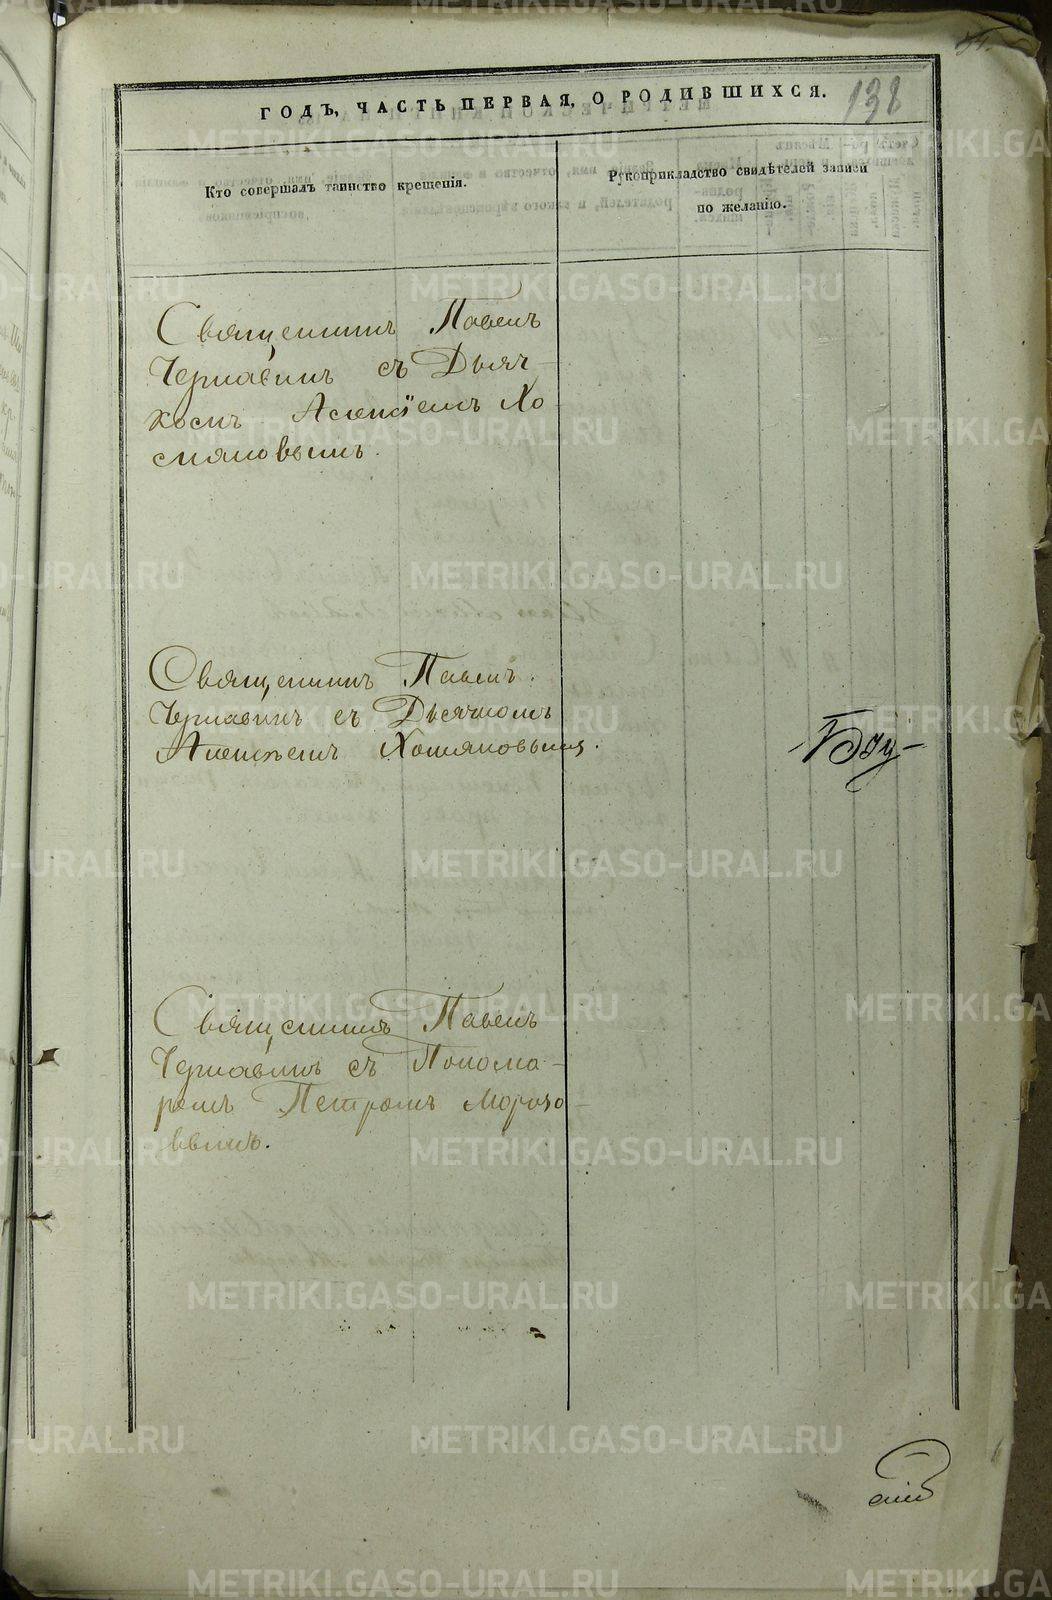 138
ГОДЪ, ЧАСТЬ ПЕРВАЯ, О РОДИВШИХСЯ.
Кто совершалъ таинство крещенія.
Рукоприкладство свидѣтелей записи
по желанію.
Священникъ Павелъ
Чернавинъ съ Дьяч-
комъ Алексіемъ Хо
мяковымъ.
Священникъ Павелъ.
Чернавинъ съ Дьячкомъ
Алексѣемъ Хомяковымъ.
Священникъ Павелъ
Чернавинъ съ Понома-
ремъ Петромъ Морозо-
вымъ.
METRIKI.GASO-URAL.RU